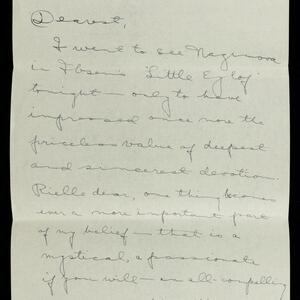 Dearest,
I went to see Nazimova
in Ibsen's 'Little Eyolf'
tonight — only to have
impressed once more the
priceless value of deepest
and sincerest devotion.
Rielle dear, one thing becomes
ever a more important part
of my belief — that is a
mystical, a passionate
if you will — an all-compelling